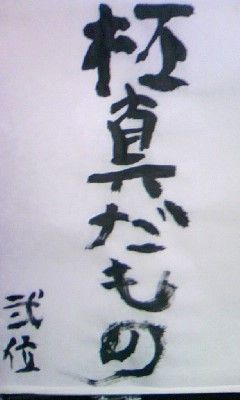 極真だもの
弐位